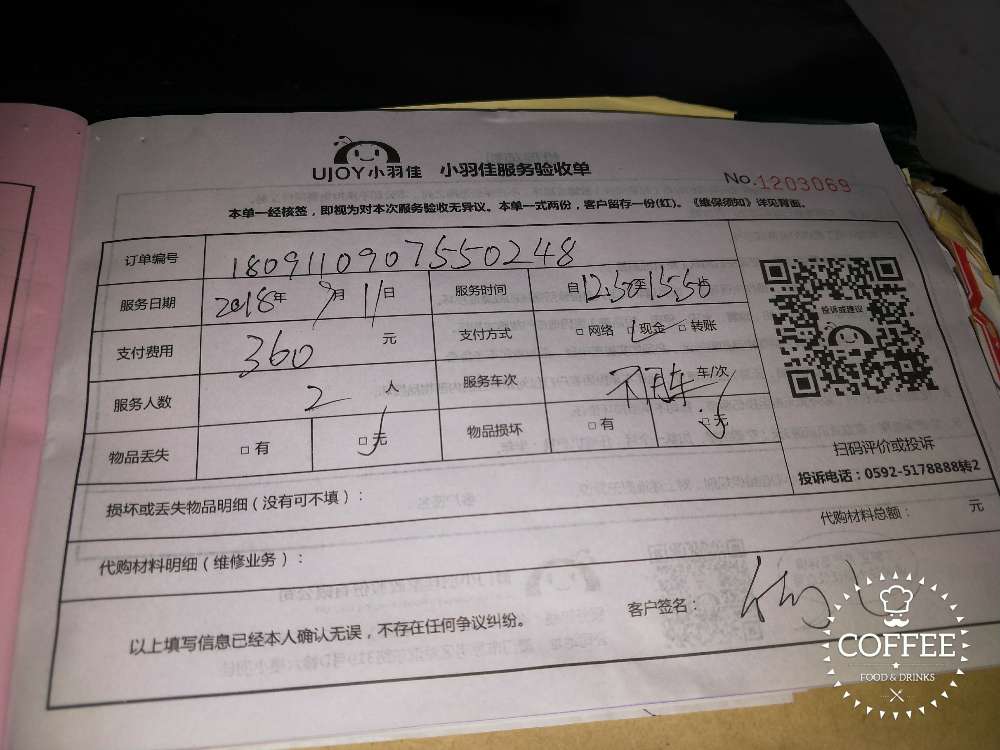 UJOY小羽佳 小羽佳服务验收单
No.1203069
本单一经核签，即视为对本次服务验收无异议。本单一式两份，客户留存一份(红)。《维保须知》详见背面。
订单编号 1809110907550248
服务日期 2018年9月11日 服务时间 自12:50至15:50
支付费用 360元 支付方式 □网络 □现金 □转账
投诉或建议
服务人数 2人 服务车次 不用车 车/次
物品丢失 □有 □无 物品损坏 □有 □无
扫码评价或投诉
投诉电话：0592-5178888转2
损坏或丢失物品明细（没有可不填）：
代购材料总额： 元
代购材料明细（维修业务）：
以上填写信息已经本人确认无误，不存在任何争议纠纷。 客户签名：
COFFEE
FOOD & DRINKS